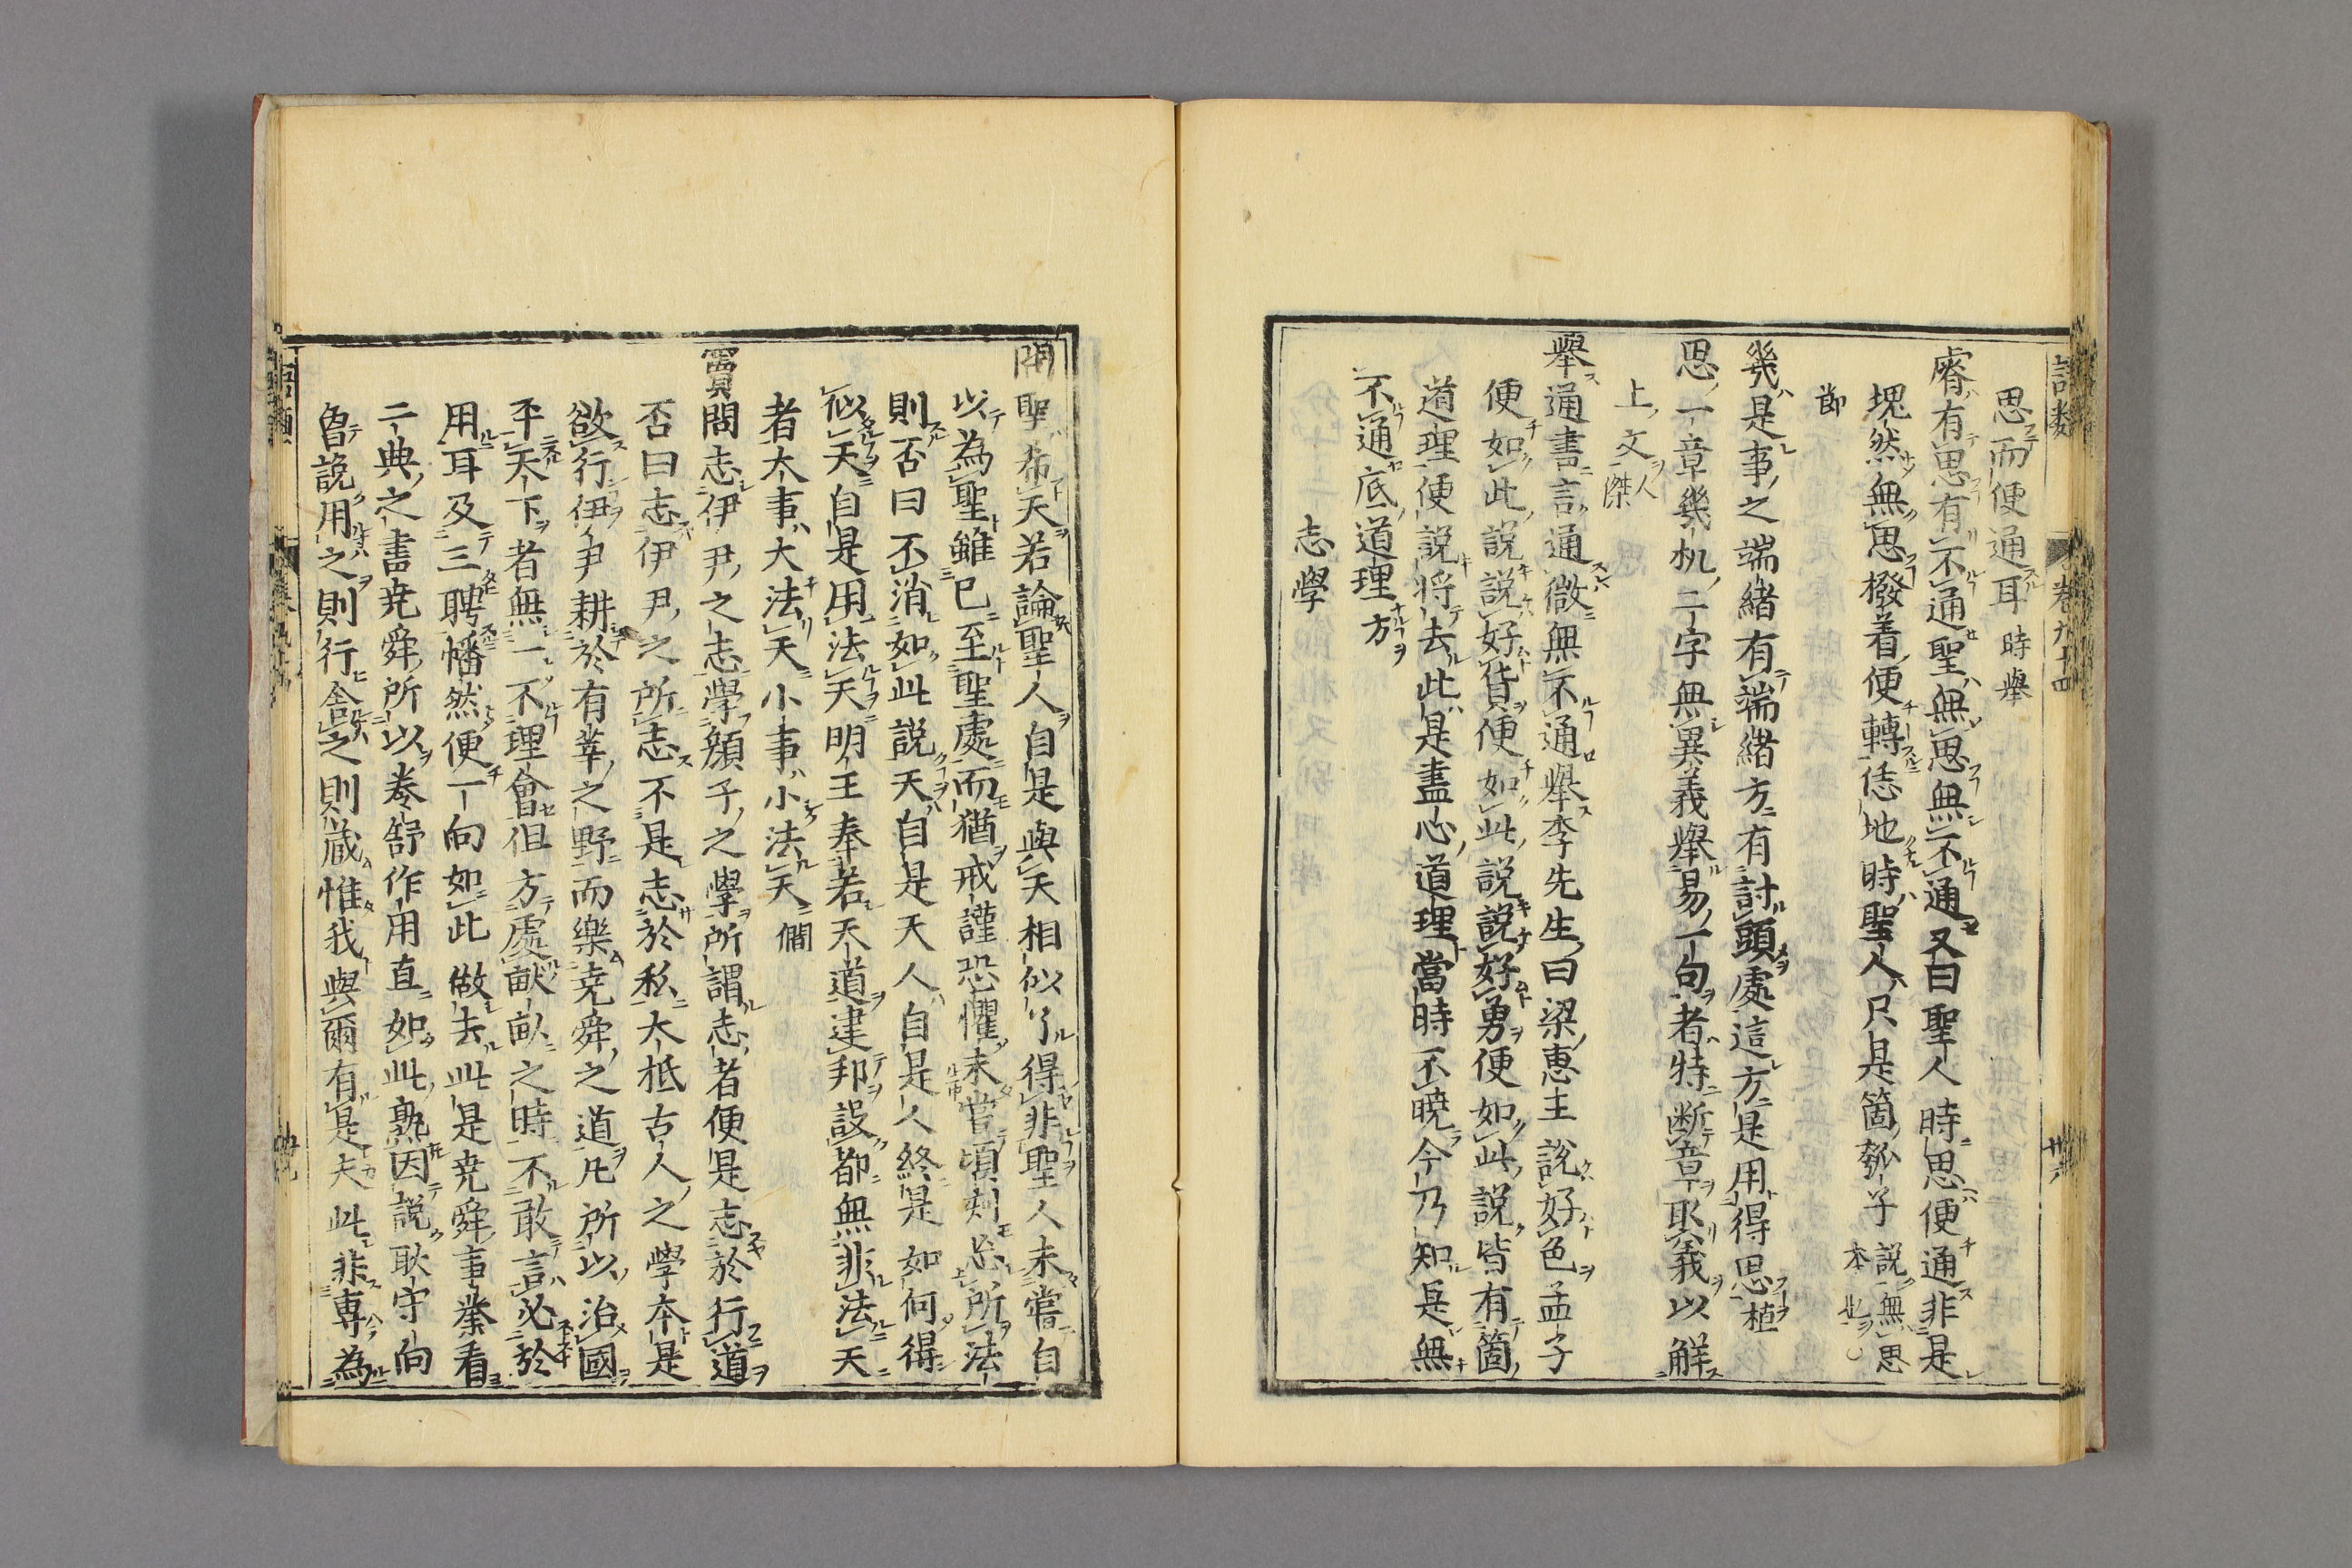 思而便通耳 時舉
睿有思有不通聖無思無不通又曰聖人時思便通非是
塊然無思撥着便轉恁地時聖人只是箇𫠦子 說無思本
節
幾是事之端緒有端緒方有討頭處這方是用得思 植
思一章幾机二字無異義舉易一句者特断章取義以解
上文 傑
舉通書言通微無不通舉李先生曰梁惠王說好色孟子
便如此說說好貨便如此說說好勇便如此說皆有箇
道理便說将去此是盡心道理當時不曉今乃知是無
不通底道理 方
志學
問聖希天若論聖人自是與天相似了得非聖人未嘗自
以為聖雖已至聖處而猶戒謹恐懼未嘗頃刻忘所法
則否曰不消如此說天自是天人自是人終是如何得
似天自是用法天明王奉若天道建邦設都無非法天
者大事大法天小事小法天 僩
竇問志伊尹之志學顏子之學所謂志者便是志於行道
否曰志伊尹之所志不是志於私大抵古人之學本是
欲行伊尹耕於有莘之野而樂堯舜之道凡所以治國
平天下者無一不理會但方處畎畝之時不敢言必於
用耳及三聘幡然便一向如此做去此是堯舜事業看
二典之書堯舜所以卷舒作用直如此熟因說耿守向
曾說用之則行舎之則蔵惟我與爾有是夫此非専為